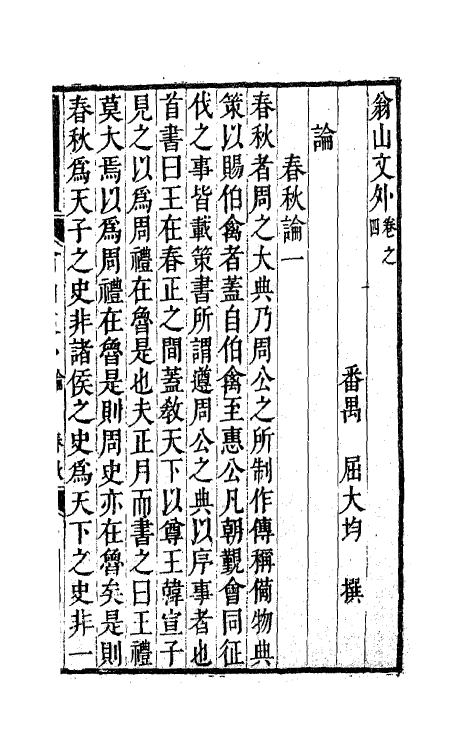 翁山文外卷之四
番禺　屈大均　撰
論
春秋論一
春秋者周之大典乃周公之所制作傳稱備物典
策以賜伯禽者蓋自伯禽至惠公凡朝覲會同征
伐之事皆載策書所謂遵周公之典以序事者也
首書曰王在春正之間蓋敎天下以尊王韓宣子
見之以爲周禮在魯是也夫正月而書之曰王禮
莫大焉以爲周禮在魯是則周史亦在魯矣是則
春秋爲天子之史非諸侯之史爲天下之史非一